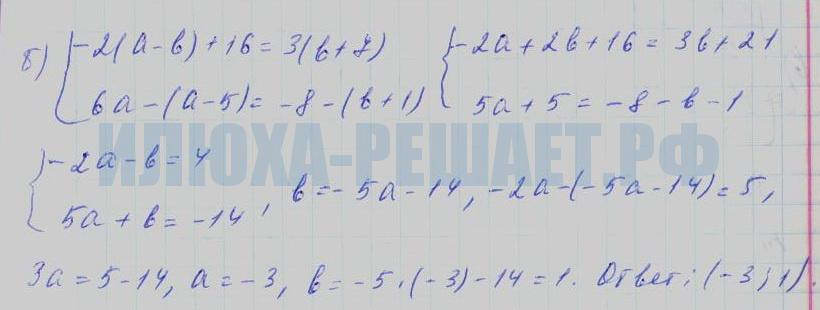 б) { -2(a-b)+16=3(b+7) { -2a+2b+16=3b+21
6a-(a-5)=-8-(b+1) 5a+5=-8-b-1
ИЛЮХА-РЕШАЕТ.РФ
{ -2a-b=4
5a+b=-14, b=-5a-14, -2a-(-5a-14)=5,
3a=5-14, a=-3, b=-5·(-3)-14=1. Ответ: (-3;1).